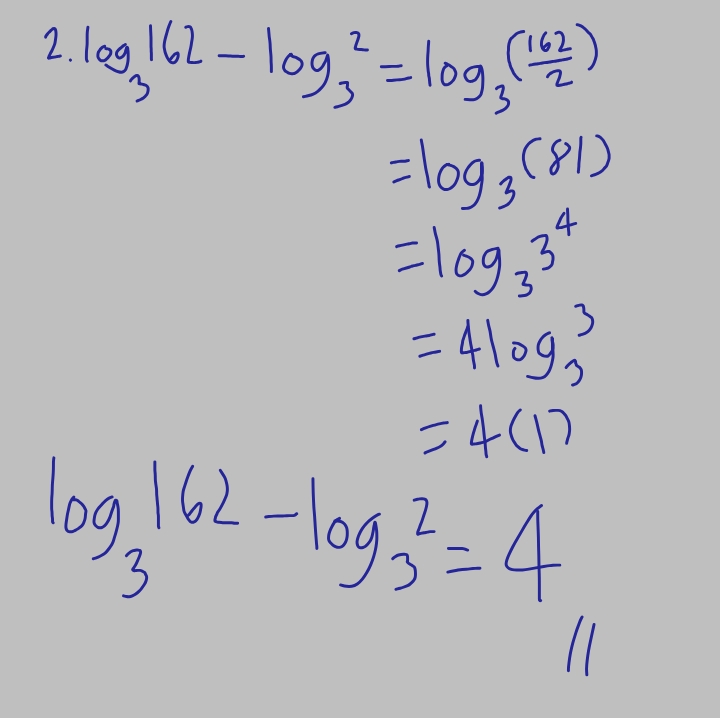 2. log₃162 − log₃2 = log₃(162/2)
= log₃(81)
= log₃3⁴
= 4log₃3
= 4(1)
log₃162 − log₃2 = 4 //